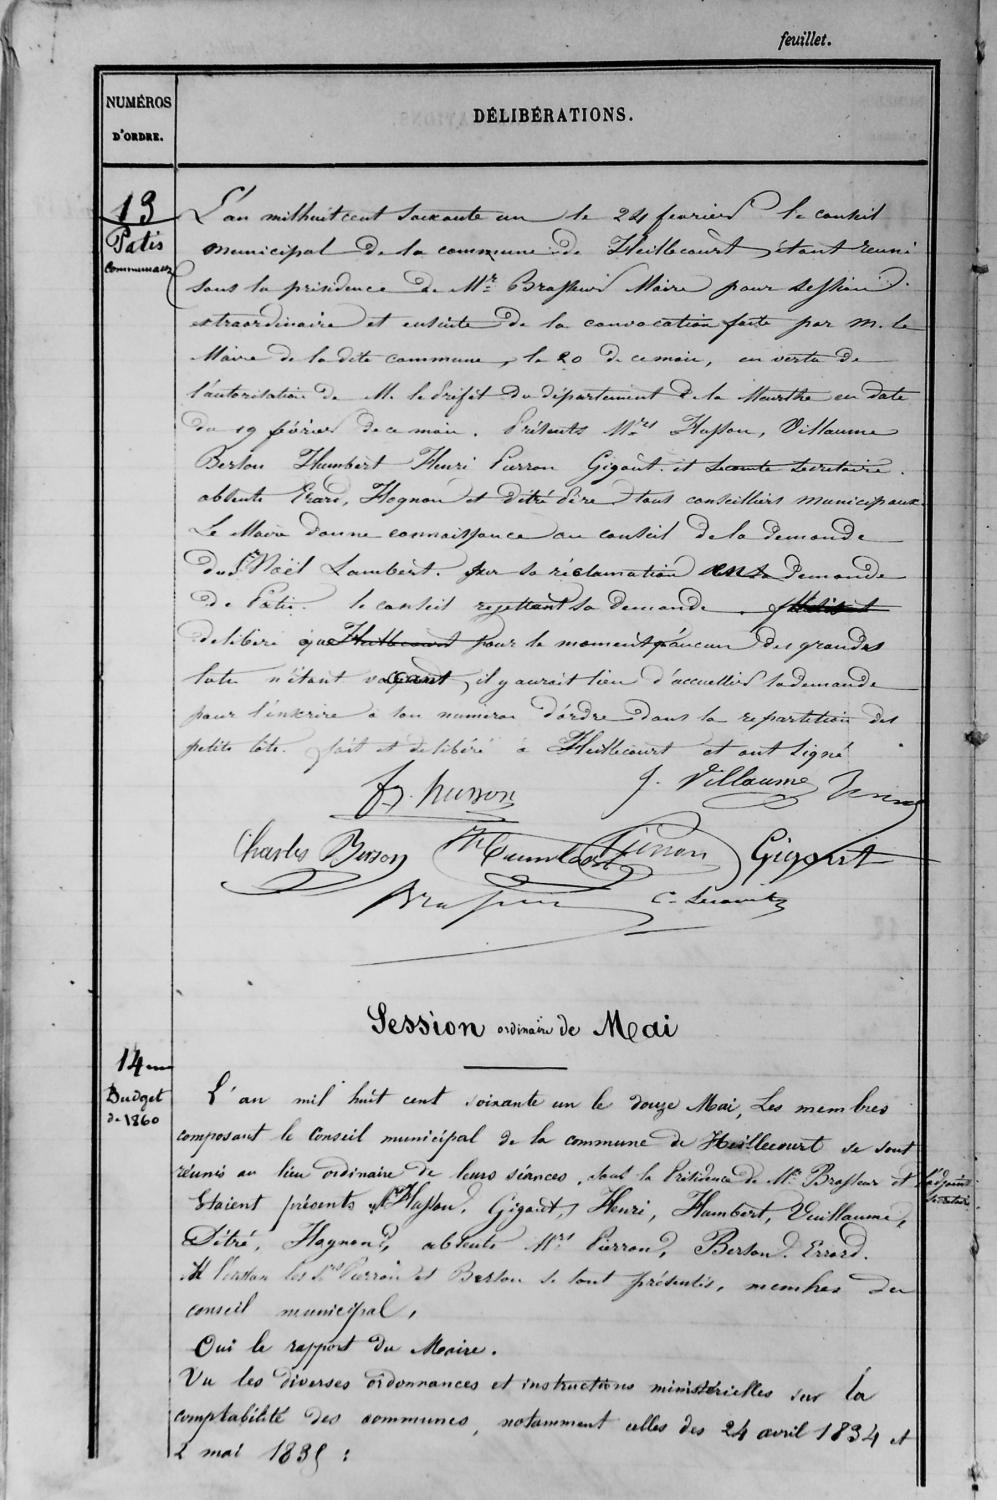 feuillet.
NUMÉROS
D'ORDRE.
DÉLIBÉRATIONS.
13
Patis
communaux
L'an mil huit cent soixante un le 24 fevrier le conseil
municipal de la commune de Heillecourt étant reuni
sous la présidence de Mr. Brasseur Maire pour session
extraordinaire et ensuite de la convocation faite par m. le
Maire de la dite commune, le 20 de ce mois, en vertu de
l'autorisation de M. le Préfet du département de la Meurthe en date
du 19 février de ce mois. Présents Mrs Husson, Villaume
Berson Humbert Henri Pierron Gigout. et Lecomte secretaire.
absents Erard, Hognon et Ditré Père tous conseillers municipaux
Le Maire donne connaissance au conseil de la demande
du Sr Noël Lambert. sur sa réclamation demande
de Patis. le conseil rejettant sa demande.
delibère que pour le moment aucun des grandes
lots n'étant vacant, il y aurait lieu d'accueillir sa demande
pour l'inscrire à son numéro d'ordre dans la repartition des
petits lots. fait et delibéré à Heillecourt et ont signé
fs. husson J. Villaume
Charles Berson Humbert Pierron Gigout
Brasseur C. Lecomte
Session ordinaire de Mai
14
Budget
de 1860
L'an mil huit cent soixante un le douze Mai, Les membres
composant le Conseil municipal de la commune de Heillecourt se sont
réunis au lieu ordinaire de leurs séances, sous la Présidence de Mr Brasseur et l'adjoint
secretaire
Etaient présents Mrs Husson, Gigout, Henri, Humbert, Vuillaume,
Ditré, Hognon, absents Mrs Pierron, Berson. Errard.
les Srs Pierron et Berson se sont présentés, membres du
conseil municipal,
Oui le rapport du Maire.
Vu les diverses ordonnances et instructions ministérielles sur la
comptabilité des communes, notamment celles des 24 avril 1834 et
2 mai 1835 :